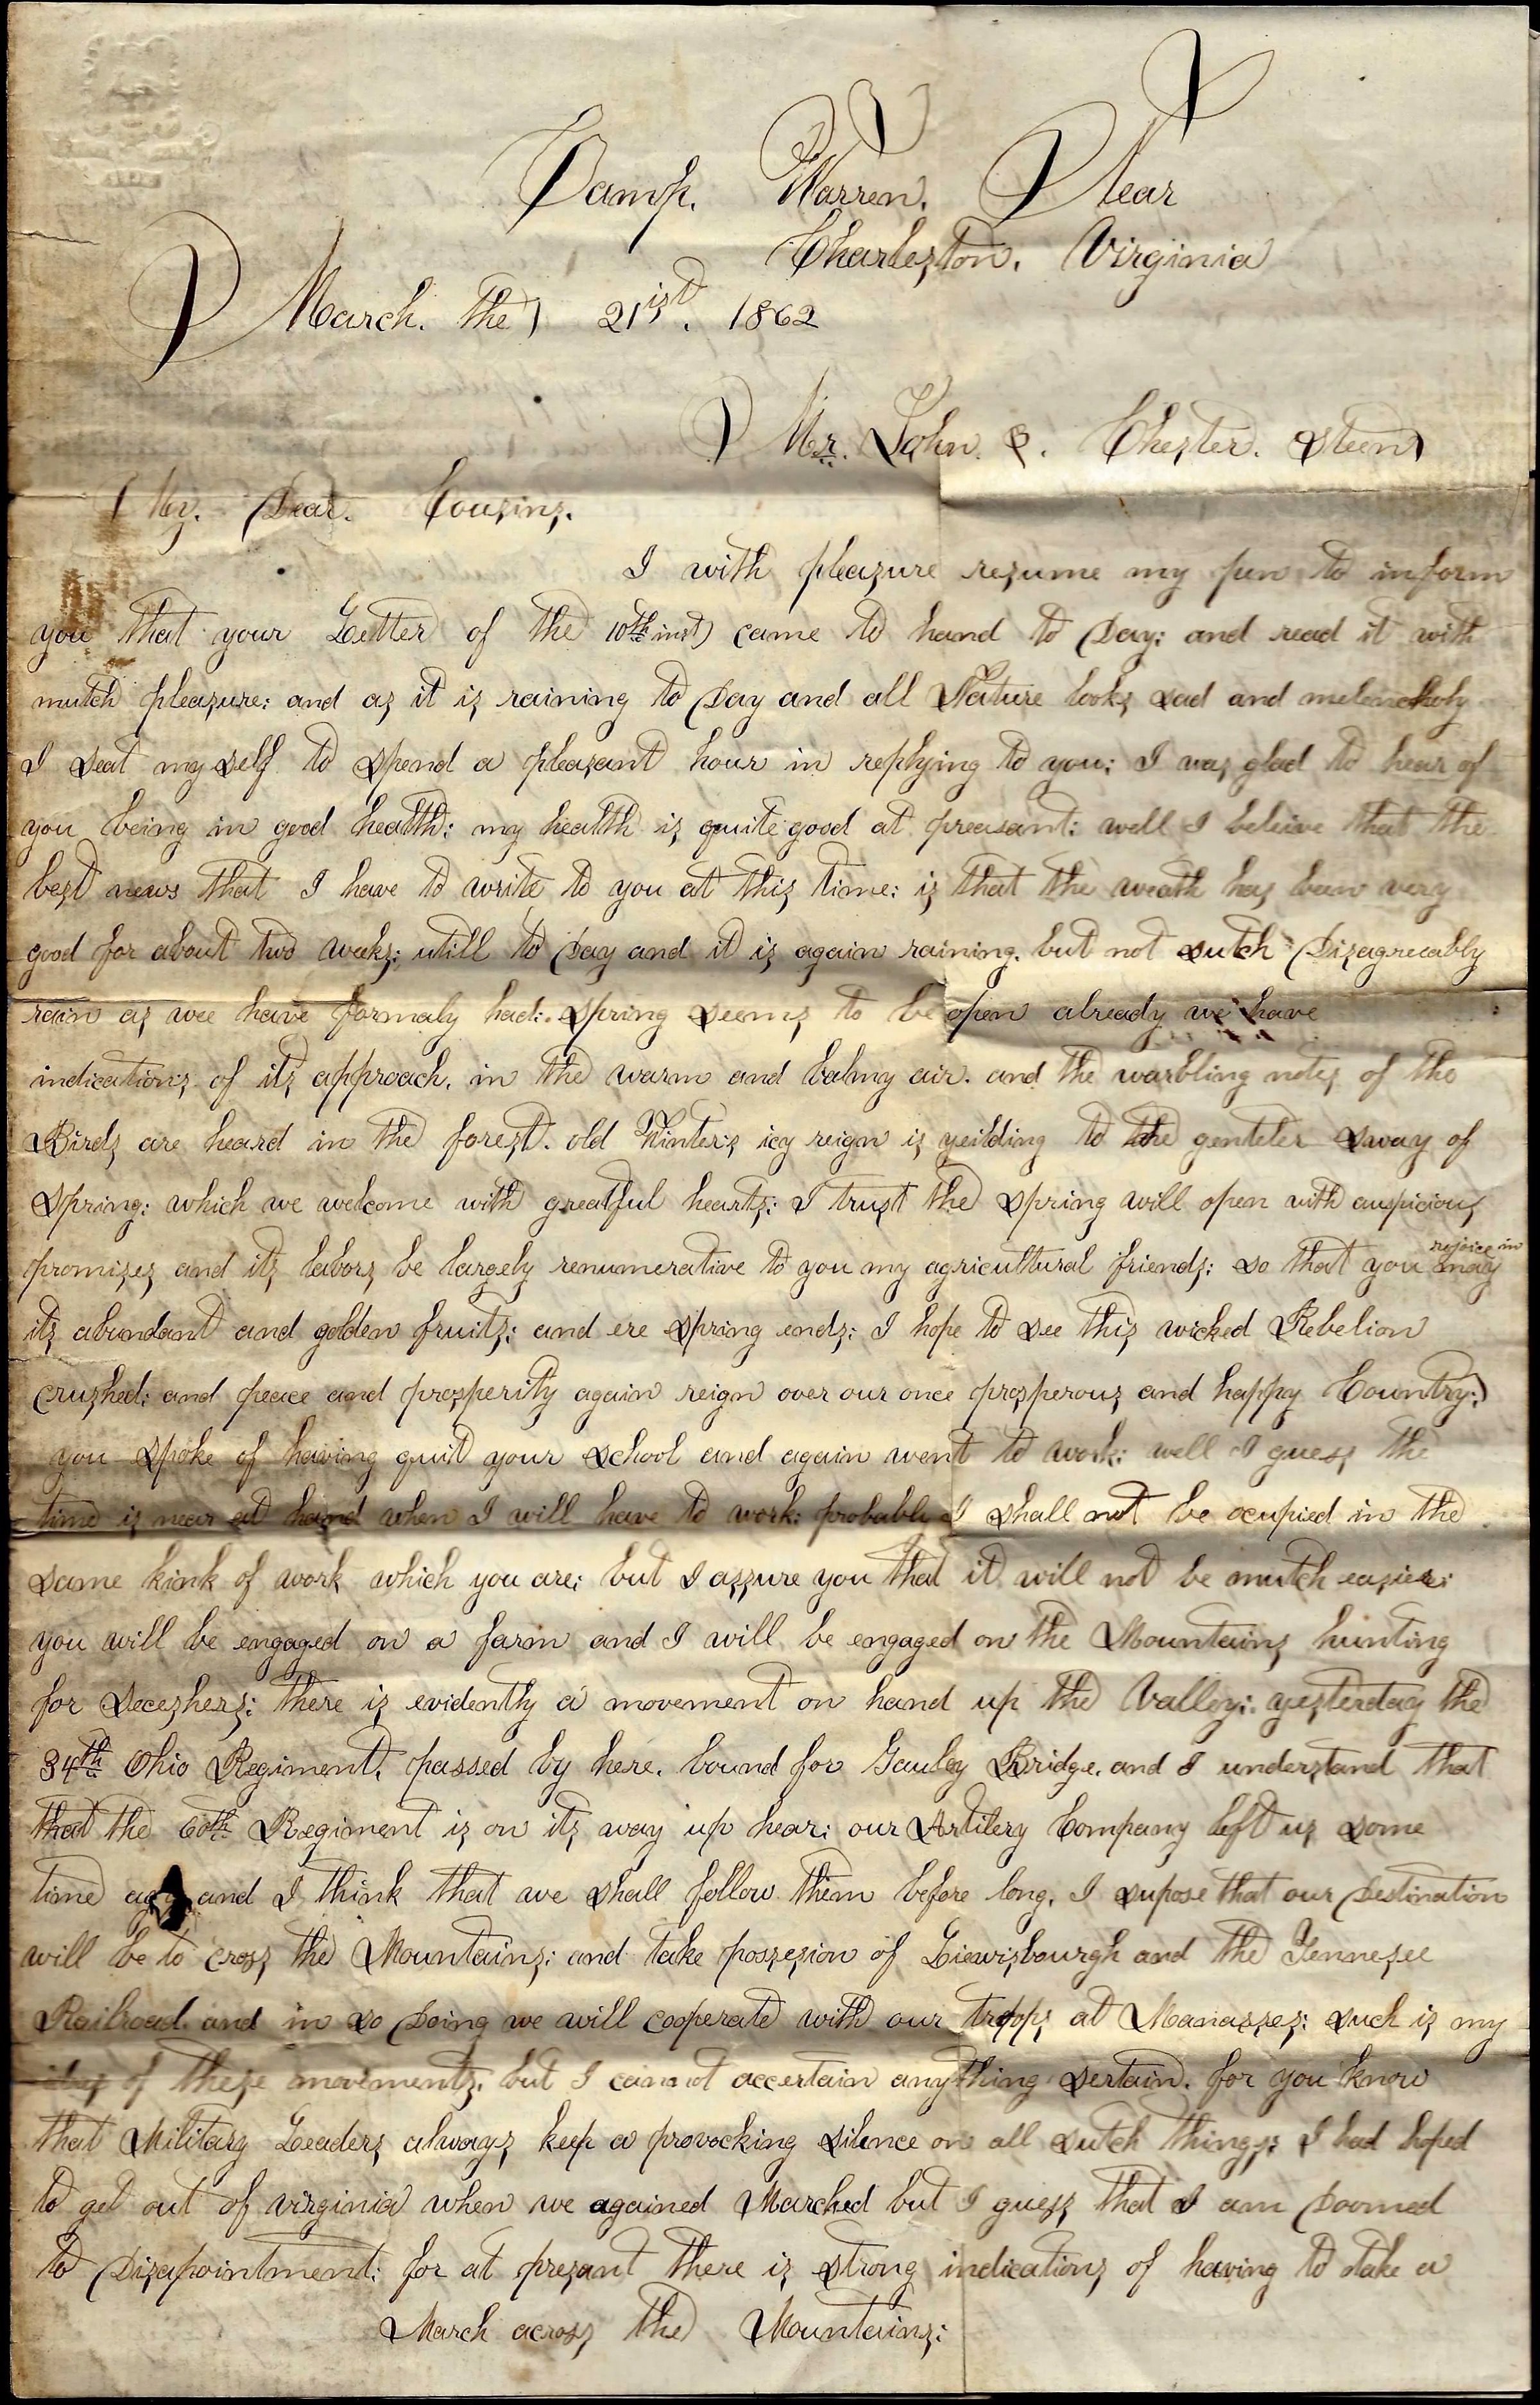 Camp. Warren. Near
Charleston. Virginia
March. the 21ist. 1862
Mr. John. &. Chester. Steen
My. Dear. Cousins.
I with pleasure resume my pen to inform
you that your Letter of the 10th inst) came to hand to Day; and read it with
mutch pleasure: and as it is raining to Day and all Nature looks sad and melancholy
I seat my self to spend a pleasant hour in replying to you; I was glad to hear of
you being in good health: my health is quite good at preasant: well I beleive that the
best news that I have to write to you at this time: is that the weath has been very
good for about two weeks; utill to Day and it is again raining. but not sutch Disagreeably
rain as wee have formaly had: Spring seems to be open already we have
indications of its approach. in the warm and balmy air. and the warbling notes of the
Birds are heard in the forest. old Winter's icy reign is yeilding to the genteler sway of
Spring: which we welcome with greatful hearts: I trust the spring will open with auspicious
promises and its labors be largely renumerative to you my agricultural friends: so that you may rejoice in
its abundant and golden fruits: and ere spring ends: I hope to see this wicked Rebelion
crushed: and peace and prosperity again reign over our once prosperous and happy Country:
you spoke of having quit your school and again went to work: well I guess the
time is near at hand when I will have to work: probably I shall not be ocupied in the
same kink of work which you are; but I assure you that it will not be mutch easier:
you will be engaged on a farm and I will be engaged on the Mountains hunting
for Seceshers: there is evidently a movement on hand up the Valley: yesterday the
34th Ohio Regiment. passed by here. bound for Gauley Bridge. and I understand that
that the 60th Regiment is on its way up hear: our Artilery Company left us some
time ago and I think that we shall follow them before long. I supose that our Destination
will be to cross the Mountains: and take possesion of Liewisbourgh and the Tennesee
Railroad. and in so Doing we will cooperate with our troops at Manasses: such is my
idea of these movements. but I cannot accertain anything sertain. for you know
that Military Leaders always keep a provocking silence on all sutch things: I had hoped
to get out of virginia when we agained Marched but I guess that I am Doomed
to Disapointment: for at presant there is strong indications of having to take a
March across the Mountains: